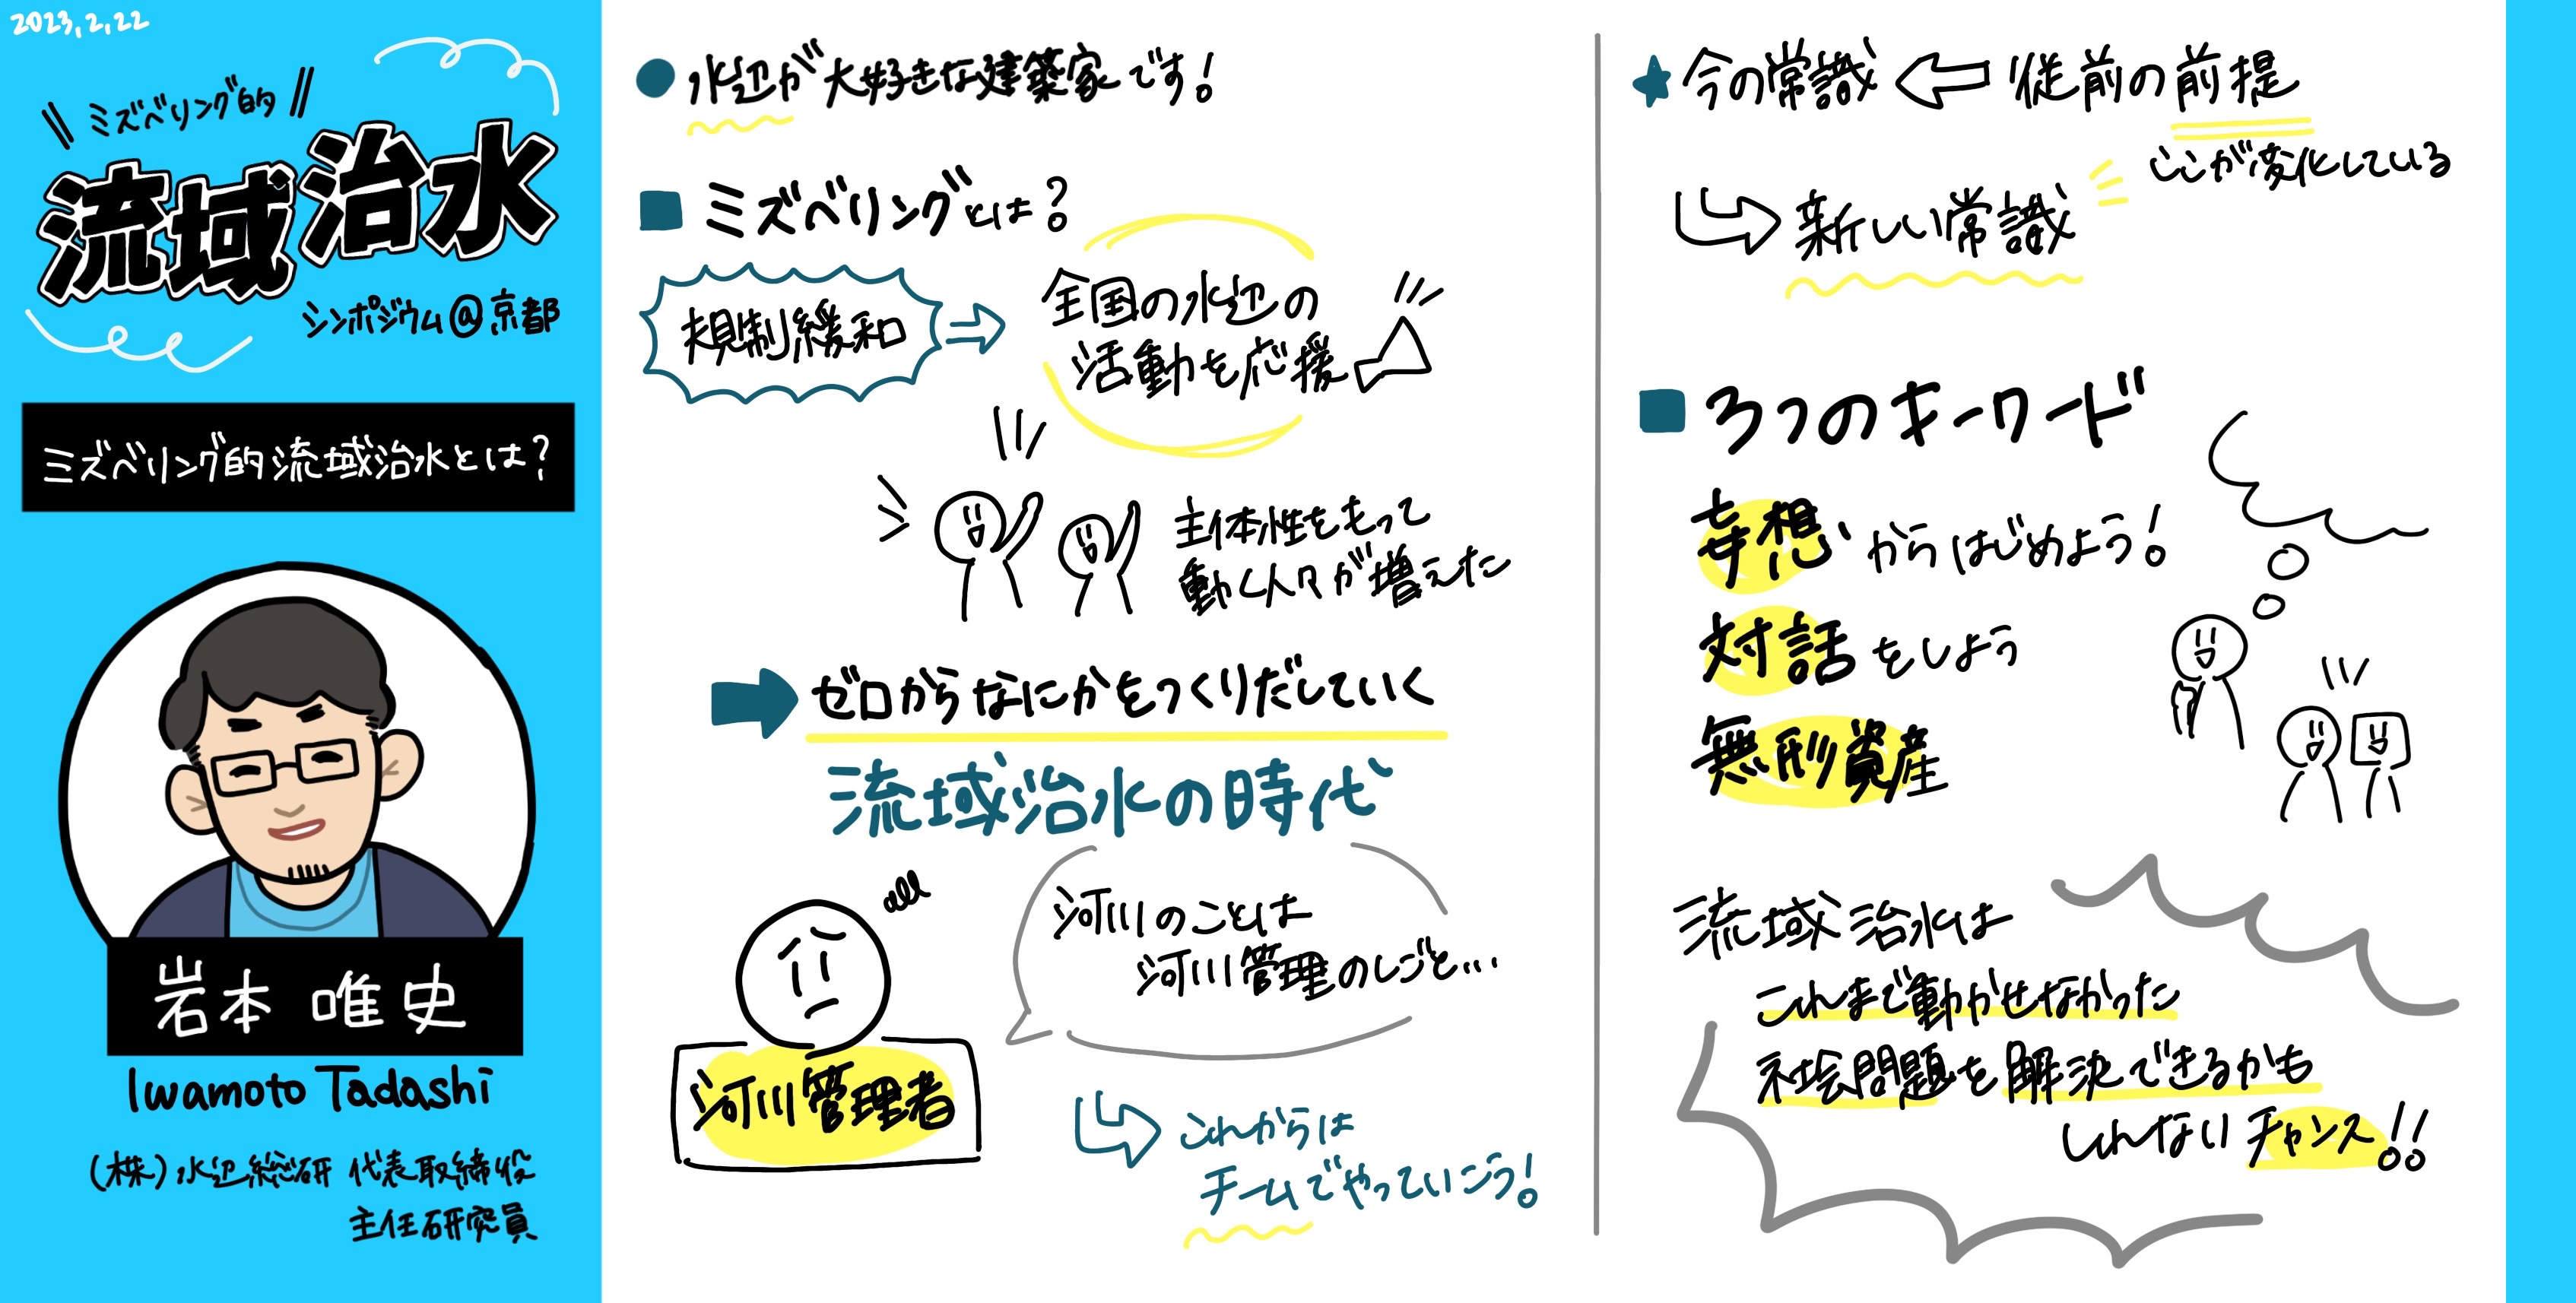 2023,2,22
ミズベリング的
流域治水
シンポジウム@京都
ミズベリング的流域治水とは?
岩本 唯史
Iwamoto Tadashi
(株)水辺総研 代表取締役
主任研究員
水辺が大好きな建築家です!
ミズベリングとは?
規制緩和
全国の水辺の
活動を応援
主体性をもって
動く人々が増えた
ゼロからなにかをつくりだしていく
流域治水の時代
河川のことは
河川管理のしごと…
河川管理者
これからは
チームでやっていこう!
今の常識 従前の前提
ここが変化している
新しい常識
3つのキーワード
妄想からはじめよう!
対話をしよう
無形資産
流域治水は
これまで動かせなかった
社会問題を解決できるかも
しれないチャンス!!